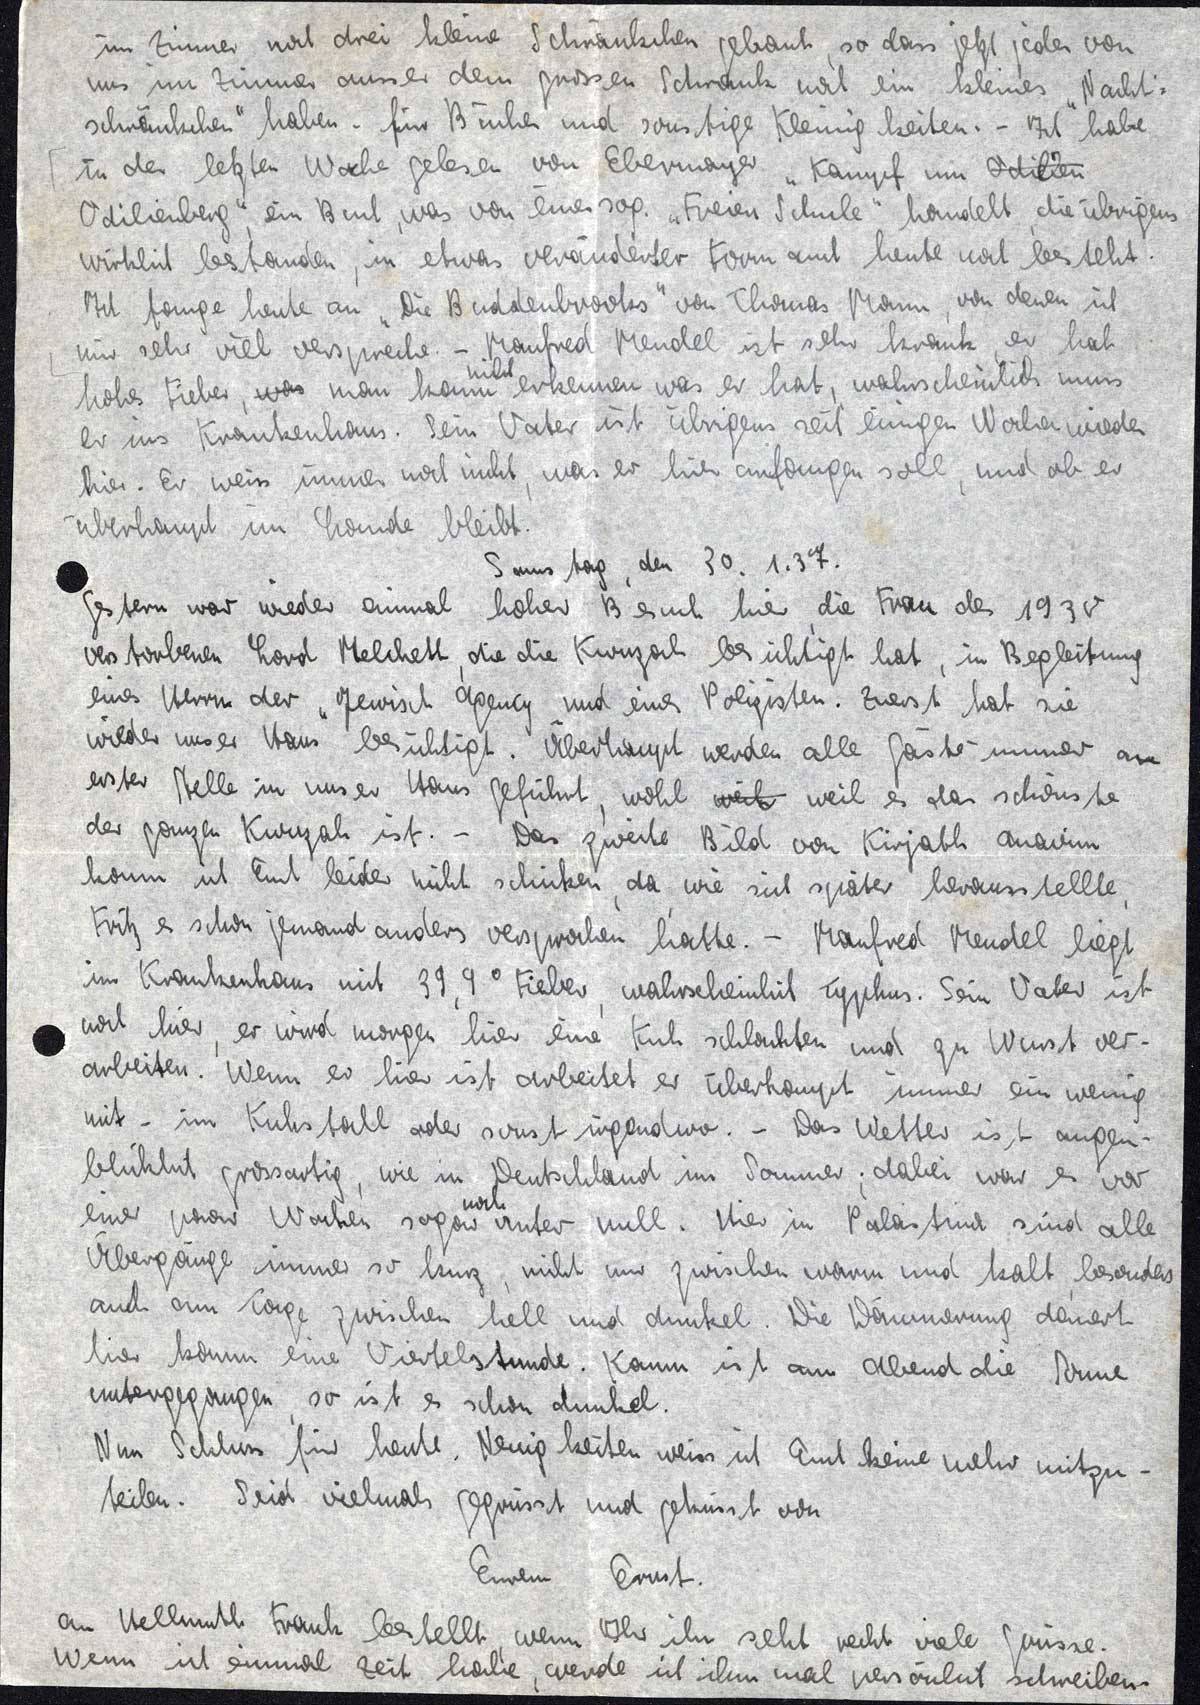 im Zimmer noch drei kleine Schränkchen gebaut, so dass jetzt jeder von
uns im Zimmer ausser dem grossen Schrank noch ein kleines „Nacht-
schränkchen" haben - für Bücher und sonstige Kleinigkeiten. - Ich habe
in der letzten Woche gelesen von Ebermayer „Kampf um Odilien
Odilienberg", ein Buch, was von einer sog. „Freien Schule" handelt, die übrigens
wirklich bestanden, in etwas veränderter Form auch heute noch besteht.
Ich fange heute an „Die Buddenbrooks" von Thomas Mann, von denen ich
mir sehr viel verspreche. - Manfred Mendel ist sehr krank, er hat
hohes Fieber, was man kann nicht erkennen was er hat, wahrscheinlich muss
er ins Krankenhaus. Sein Vater ist übrigens seit einigen Wochen wieder
hier. Er weiss immer noch nicht, was er hier anfangen soll, und ob er
überhaupt im Lande bleibt.
Samstag, den 30. 1. 37.
Gestern war wieder einmal hoher Besuch hier, die Frau des 1930
verstorbenen Lord Melchett, die die Kwuzah besichtigt hat, in Begleitung
eines Herrn der „Jewisch Agency und eines Polizisten. Zuerst hat sie
wieder unser Haus besichtigt. Überhaupt werden alle Gäste immer an
erster Stelle in unser Haus geführt, wohl weil weil es das schönste
der ganzen Kwuzah ist. - Das zweite Bild von Kirjath Anavim
kann ich Euch leider nicht schicken, da, wie sich später herausstellte,
Fritz es schon jemand anders versprochen hatte. - Manfred Mendel liegt
im Krankenhaus mit 39,9° Fieber, wahrscheinlich Typhus. Sein Vater ist
noch hier, er wird morgen hier eine Kuh schlachten und zu Wurst ver-
arbeiten. Wenn er hier ist arbeitet er überhaupt immer ein wenig
mit - im Kuhstall oder sonst irgendwo. - Das Wetter ist augen-
blicklich grossartig, wie in Deutschland im Sommer; dabei war es vor
einer paar Wochen sogar noch unter null. Hier in Palästina sind alle
Übergänge immer so kurz, nicht nur zwischen warm und kalt, besonders
auch am Tage zwischen hell und dunkel. Die Dämmerung dauert
hier kaum eine Viertelstunde. Kaum ist am Abend die Sonne
untergegangen, so ist es schon dunkel.
Nun Schluss für heute. Neuigkeiten weiss ich Euch keine mehr mitzu-
teilen. Seid vielmals gegrüsst und geküsst von
Eurem Ernst.
An Hellmuth Frank bestellt, wenn Ihr ihn seht recht viele Grüsse.
Wenn ich einmal Zeit habe, werde ich ihm mal persönlich schreiben.